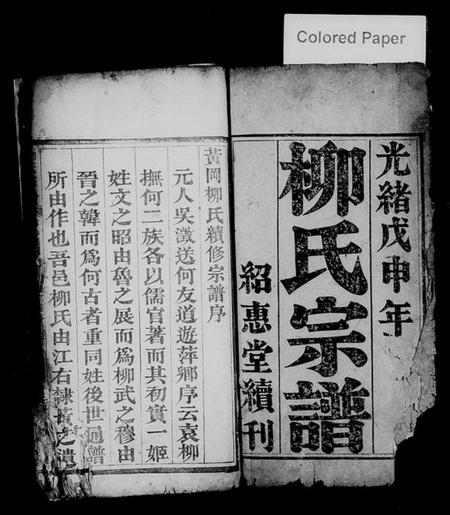 Colored Paper
光緒戊申年
柳氏宗譜
紹惠堂續刊
黃岡柳氏續修宗譜序
元人吳澂送何友道遊萍鄉序云袁柳
撫何二族各以儒官著而其初實一姬
姓文之昭由魯之展而爲柳武之穆由
晉之韓而爲何古者重同姓後世通譜
所由作也吾邑柳氏由江右隸黃之